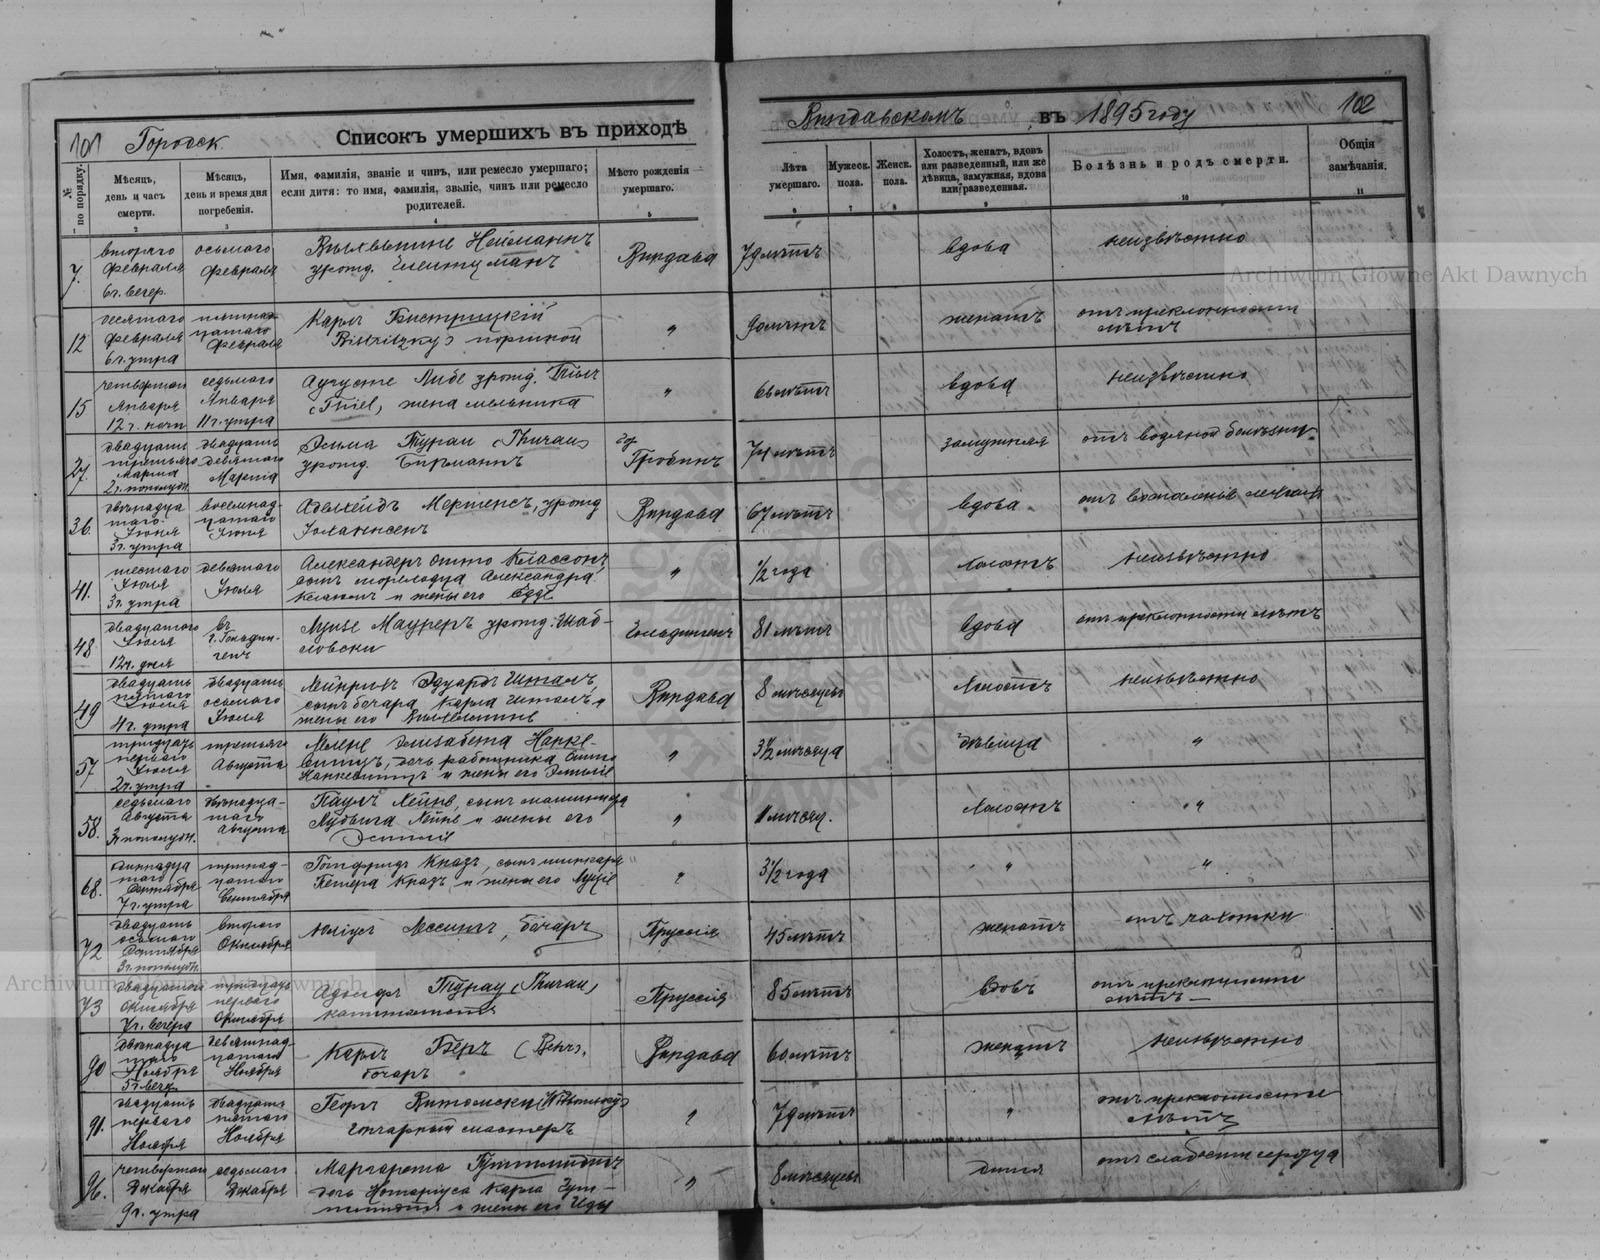 101 Городск. Списокъ умершихъ въ приходѣ Виндавскомъ въ 1895 году 102
№ по порядку.
Мѣсяцъ, день и часъ смерти.
Мѣсяцъ, день и время дня погребенія.
Имя, фамилія, званіе и чинъ, или ремесло умершаго; если дитя: то имя, фамилія, званіе, чинъ или ремесло родителей.
Мѣсто рожденія умершаго.
Лѣта умершаго.
Мужеск. пола.
Женск. пола.
Холостъ, женатъ, вдовъ или разведенный, или же дѣвица, замужная, вдова или разведенная.
Болѣзнь и родъ смерти.
Общія замѣчанія.
1 2 3 4 5 6 7 8 9 10 11
7. второго февраля 6 ч. вечер.
осьмого февраля
Вильгельмине Нейманнъ
урожд.
Виндава
79 лѣтъ
вдова
неизвѣстно
12 десятаго февраля 6 ч. утра
пятнадцатаго февраля
Карлъ Бистрицкій
Bistritzky) портной
"
90 лѣтъ
женатъ
отъ преклонности лѣтъ
15 четвертаго Января 12 ч. ночи
седьмого Января 11 ч. утра
Аугусте Либе урожд. Тиль
(Thiel, жена мельника
"
66 лѣтъ
вдова
неизвѣстно
27. двадцать третьяго Марта 2 ч. пополудн.
двадцать девятаго Марта
Эмма Турау (Thurau)
урожд. Бирманнъ
гр. Гробинъ
74 лѣтъ
замужняя
отъ водяной болѣзни
36. двѣнадцатаго Іюня 3 ч. утра
восемнадцатаго Іюня
Аделхейдъ Мертенсъ, урожд
Іоланнсенъ
Виндава
67 лѣтъ
вдова
отъ воспаленія легкихъ
41. шестаго Іюля 3 ч. утра
девятаго Іюля
Александеръ Отто Классонъ
сынъ морехода Александра
и жены его Едде
"
1/2 года
холостъ
неизвѣстно
48 двадцатого Іюля 12 ч. дня
въ г. Гольдингенъ
Луизе Мауреръ урожд. Шабловски
Гольдингенъ
81 лѣтъ
вдова
отъ преклонности лѣтъ
49 двадцать пятаго Іюля 4 ч. утра
двадцать осьмаго Іюля
Хейнрихъ Эдуардъ Шталь,
сынъ бочара Карла Шталь и
жены его Вильгельмине
Виндава
8 мѣсяцевъ
Холостъ
неизвѣстно
57 тридцать перваго Іюля 2 ч. утра
третьяго Августа
Хелене Элизабета Наркевичъ, дочь работника Отто
Наркевичъ и жены его Эмилie
"
3 1/2 мѣсяца
дѣвица
"
58. седьмаго Августа 3 ч. пополудн.
двѣнадцатаго Августа
Пауль Хейне, сынъ машиниста
Лудвига Хейне и жены его
Эмилie
"
11 мѣсяц.
Холостъ
"
68. Сентября 7 ч. утра
тринадцатаго Сентября
Готфридъ Кнаэъ, сынъ шинкаря
Петера Кнаэъ и жены его Луизе
"
3 1/2 года
"
"
72 двадцать осьмаго Сентября 3 ч. пополудн.
второго Октября
Юліусъ Лессингъ, бочаръ
Пруссія
45 лѣтъ
женатъ
отъ чахотки
73 Октября 7 ч. вечера
тридцать перваго Октября
Адольфъ Турау (Thurau)
Пруссія
85 лѣтъ
вдовъ
отъ преклонности лѣтъ
90 двѣнадцатаго Ноября 5 ч. вечер.
девятнадцатаго Ноября
Карлъ Беръ
бочаръ
Виндава
60 лѣтъ
женатъ
неизвѣстно
91. двадцать перваго Ноября
двадцать пятаго Ноября
Георгъ Витомски
гончарный мастеръ
"
79 лѣтъ
"
отъ преклонности лѣтъ
96. четвертаго Декабря 9 ч. утра
седьмаго Декабря
Маргарета
дочь Нотаріуса Карла
и жены его Иды
"
8 мѣсяцевъ
дитя
отъ слабости сердца
Archiwum Główne Akt Dawnych
Archiwum Główne Akt Dawnych